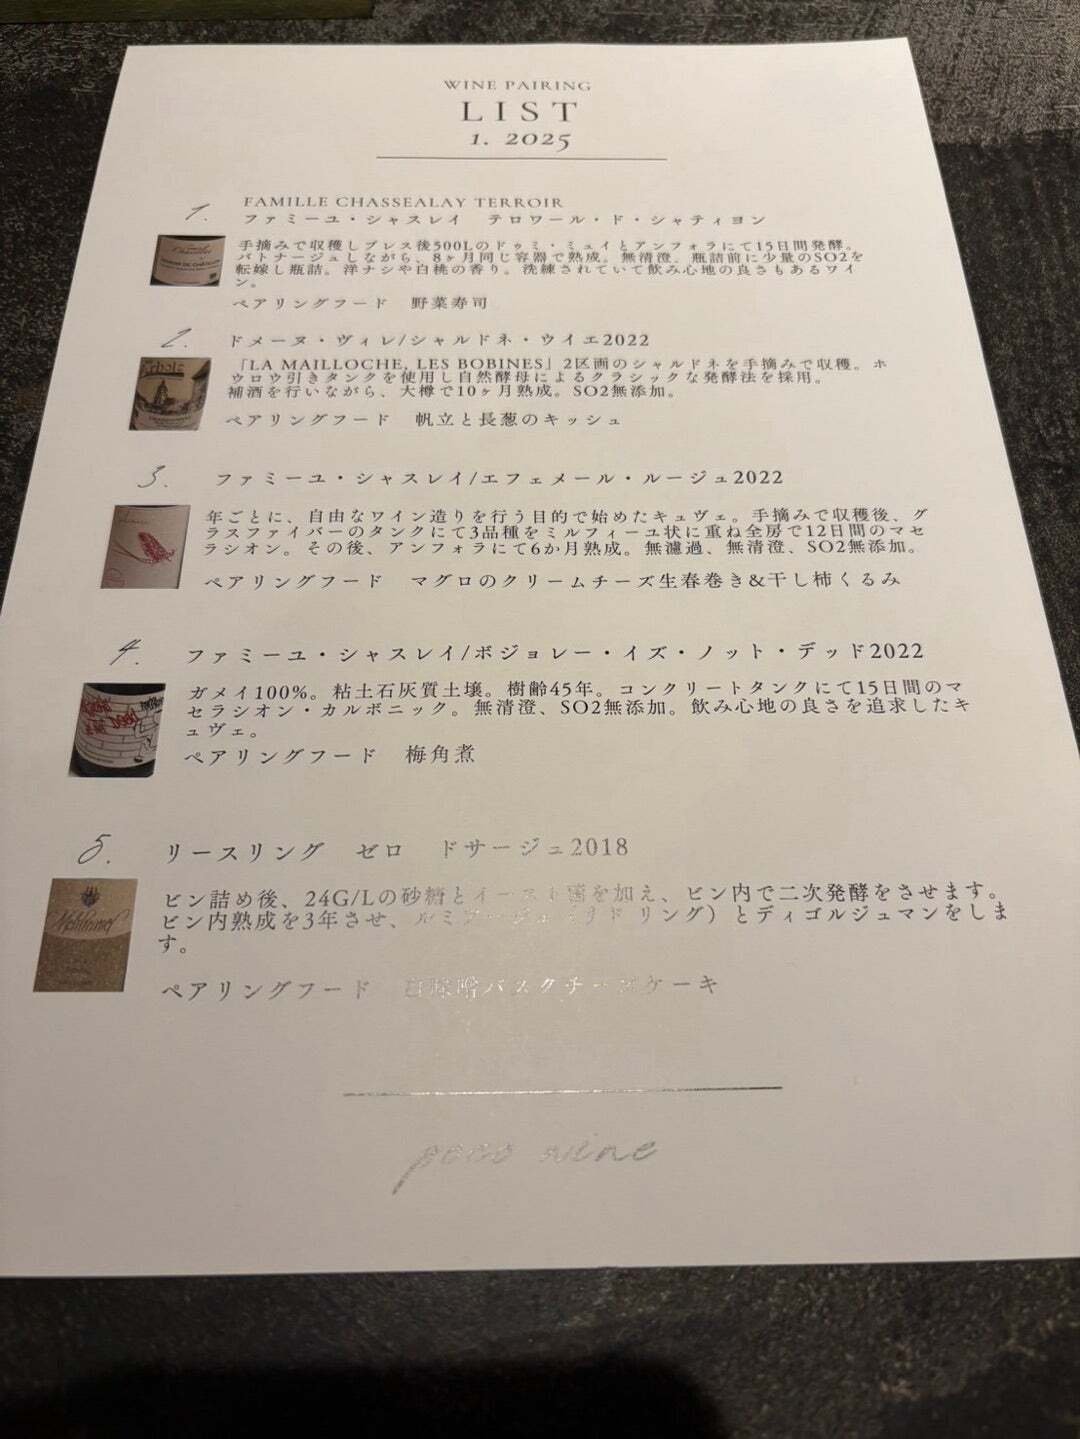 WINE PAIRING
LIST
1. 2025
1.
FAMILLE CHASSEALAY TERROIR
ファミーユ・シャスレイ テロワール・ド・シャティヨン
手摘みで収穫しプレス後500Lのドゥミ・ミュイとアンフォラにて15日間発酵。
バトナージュしながら、8ヶ月同じ容器で熟成。無清澄、瓶詰前に少量のSO2を
転嫁し瓶詰。洋ナシや白桃の香り。洗練されていて飲み心地の良さもあるワイ
ン。
ペアリングフード 野菜寿司
2.
ドメーヌ・ヴィレ/シャルドネ・ウイエ2022
「LA MAILLOCHE, LES BOBINES」2区画のシャルドネを手摘みで収穫。ホ
ウロウ引きタンクを使用し自然酵母によるクラシックな発酵法を採用。
補酒を行いながら、大樽で10ヶ月熟成。SO2無添加。
ペアリングフード 帆立と長葱のキッシュ
3.
ファミーユ・シャスレイ/エフェメール・ルージュ2022
年ごとに、自由なワイン造りを行う目的で始めたキュヴェ。手摘みで収穫後、グ
ラスファイバーのタンクにて3品種をミルフィーユ状に重ね全房で12日間のマセ
ラシオン。その後、アンフォラにて6か月熟成。無濾過、無清澄、SO2無添加。
ペアリングフード マグロのクリームチーズ生春巻き&干し柿くるみ
4.
ファミーユ・シャスレイ/ボジョレー・イズ・ノット・デッド2022
ガメイ100%。粘土石灰質土壌。樹齢45年。コンクリートタンクにて15日間のマ
セラシオン・カルボニック。無清澄、SO2無添加。飲み心地の良さを追求したキ
ュヴェ。
ペアリングフード 梅角煮
5.
リースリング ゼロ ドサージュ2018
ビン詰め後、24G/Lの砂糖とイースト菌を加え、ビン内で二次発酵をさせます。
ビン内熟成を3年させ、ルミアージュ リング）とディゴルジュマンをしま
す。
ペアリングフード 白味噌バスクチーズケーキ
poco wine